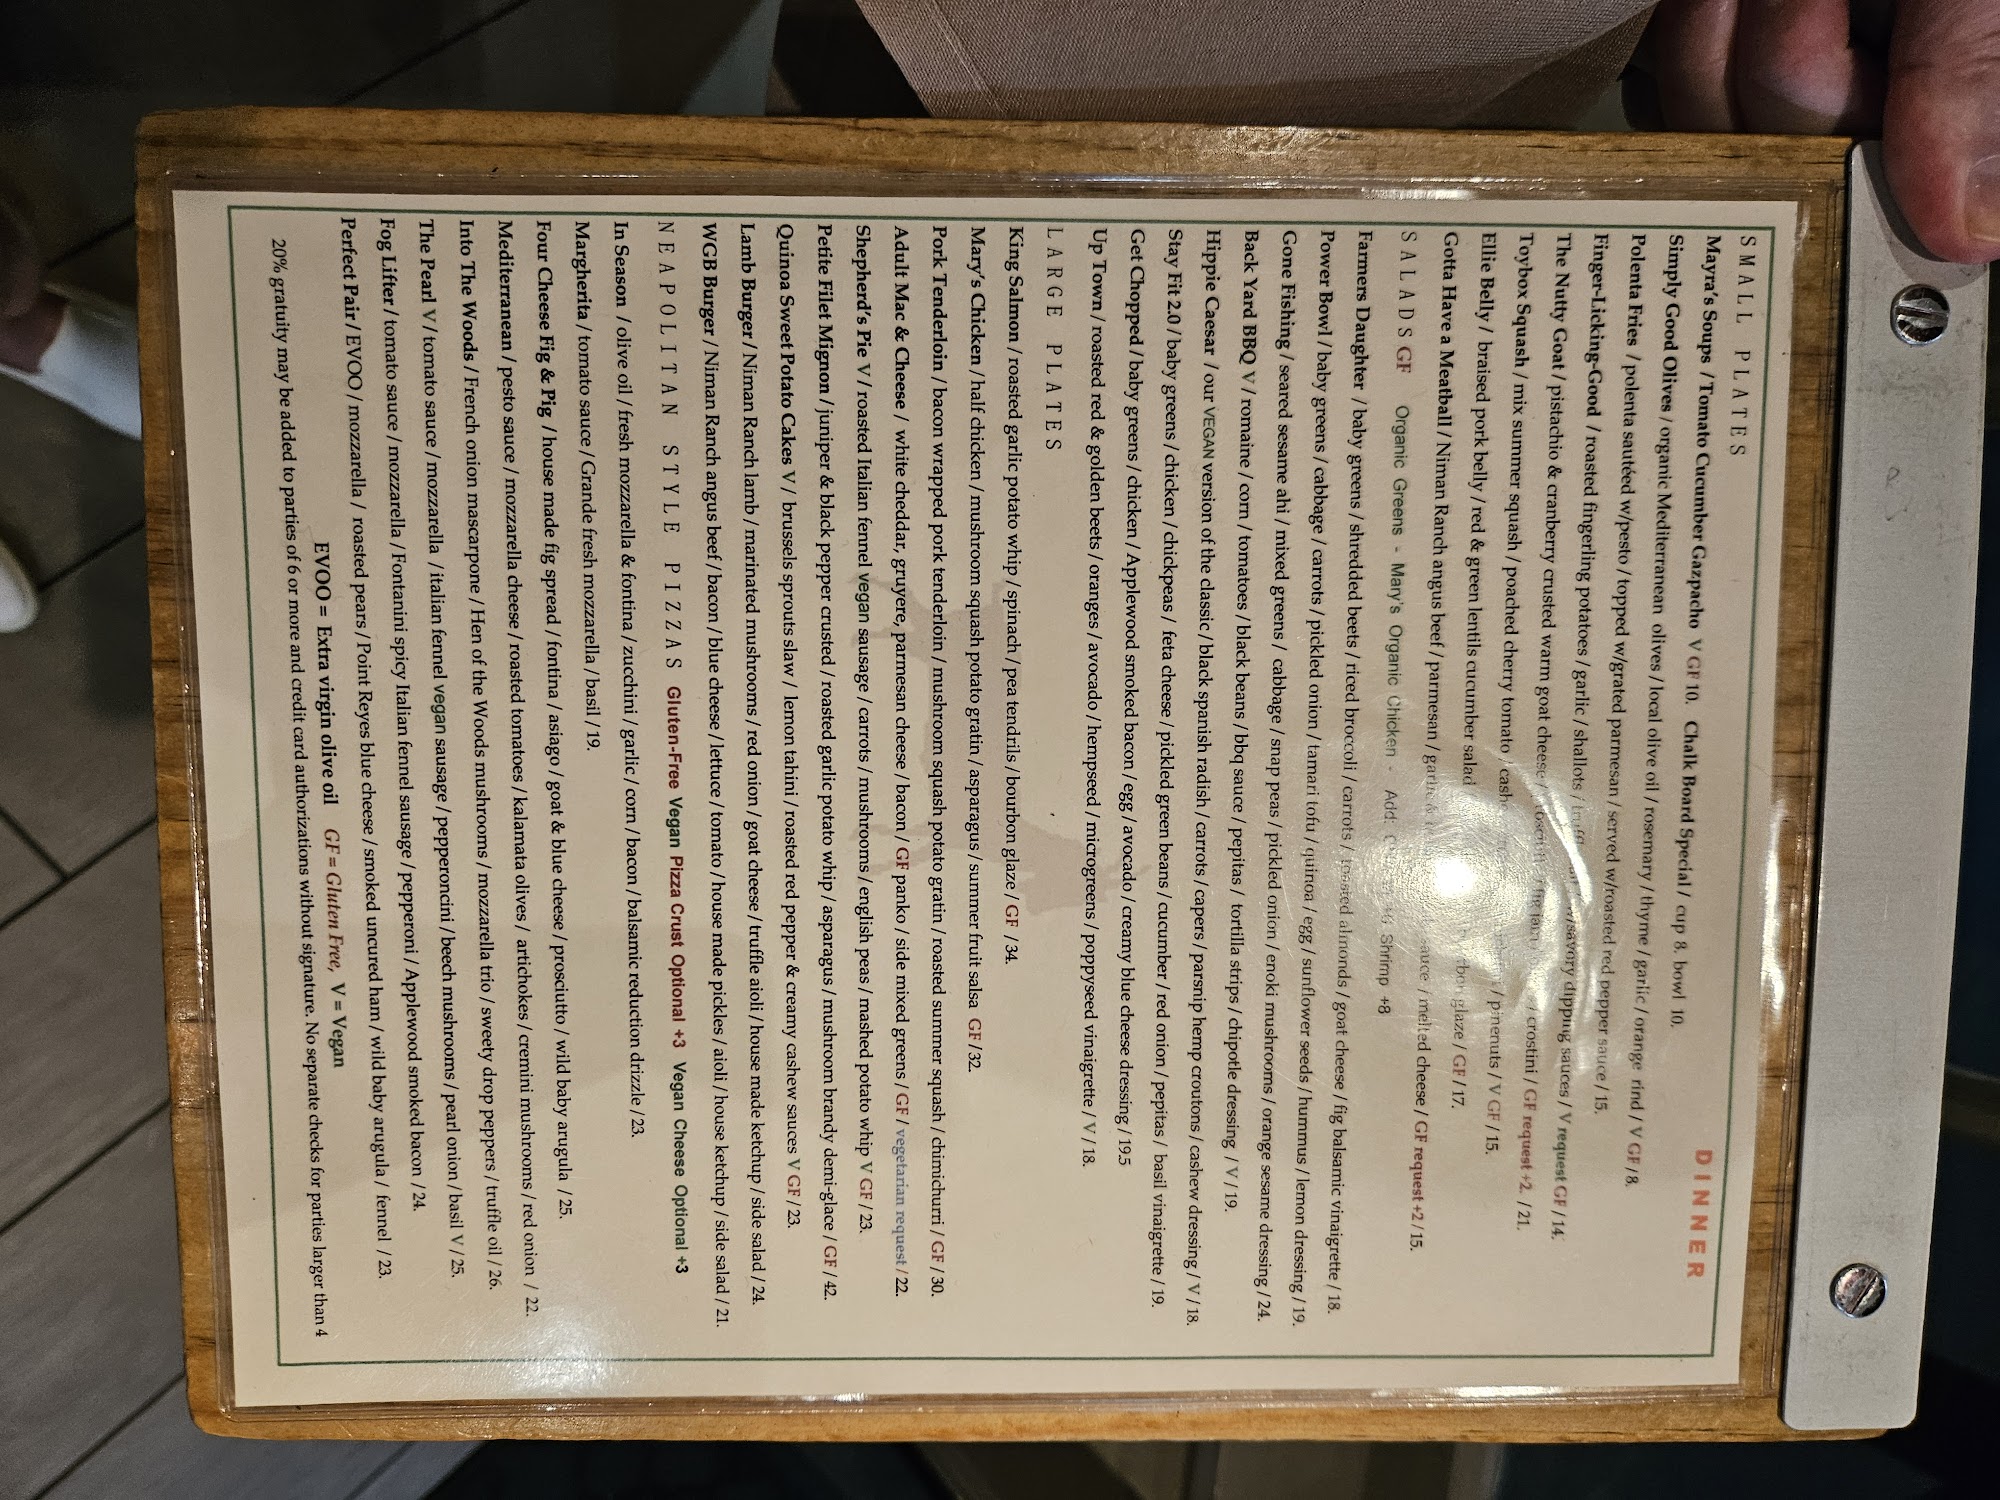 DINNER
SMALL PLATES
Mayra's Soups / Tomato Cucumber Gazpacho V GF 10. Chalk Board Special / cup 8. bowl 10.
Simply Good Olives / organic Mediterranean olives / local olive oil / rosemary / thyme / garlic / orange rind / V GF / 8.
Polenta Fries / polenta sautéed w/pesto / topped w/grated parmesan / served w/roasted red pepper sauce / 15.
Finger-Licking-Good / roasted fingerling potatoes / garlic / shallots / w/savory dipping sauces / V request GF / 14.
The Nutty Goat / pistachio & cranberry crusted warm goat cheese / crostini / GF request +2. / 21.
Toybox Squash / mix summer squash / poached cherry tomato / pinenuts / V GF / 15.
Ellie Belly / braised pork belly / red & green lentils cucumber salad glaze / GF / 17.
Gotta Have a Meatball / Niman Ranch angus beef / parmesan / sauce / melted cheese / GF request +2 / 15.
SALADS GF Organic Greens - Mary's Organic Chicken - Add: Shrimp +8
Farmers Daughter / baby greens / shredded beets / riced broccoli / carrots / toasted almonds / goat cheese / fig balsamic vinaigrette / 18.
Power Bowl / baby greens / cabbage / carrots / pickled onion / tamari tofu / quinoa / egg / sunflower seeds / hummus / lemon dressing / 19.
Gone Fishing / seared sesame ahi / mixed greens / cabbage / snap peas / pickled onion / enoki mushrooms / orange sesame dressing / 24.
Back Yard BBQ V / romaine / corn / tomatoes / black beans / bbq sauce / pepitas / tortilla strips / chipotle dressing / V / 19.
Hippie Caesar / our VEGAN version of the classic / black spanish radish / carrots / capers / parsnip hemp croutons / cashew dressing / V / 18.
Stay Fit 2.0 / baby greens / chicken / chickpeas / feta cheese / pickled green beans / cucumber / red onion / pepitas / basil vinaigrette / 19.
Get Chopped / baby greens / chicken / Applewood smoked bacon / egg / avocado / creamy blue cheese dressing / 19.5
Up Town / roasted red & golden beets / oranges / avocado / hempseed / microgreens / poppyseed vinaigrette / V / 18.
LARGE PLATES
King Salmon / roasted garlic potato whip / spinach / pea tendrils / bourbon glaze / GF / 34.
Mary's Chicken / half chicken / mushroom squash potato gratin / asparagus / summer fruit salsa GF / 32.
Pork Tenderloin / bacon wrapped pork tenderloin / mushroom squash potato gratin / roasted summer squash / chimichurri / GF / 30.
Adult Mac & Cheese / white cheddar, gruyere, parmesan cheese / bacon / GF panko / side mixed greens / GF / vegetarian request / 22.
Shepherd's Pie V / roasted Italian fennel vegan sausage / carrots / mushrooms / english peas / mashed potato whip V GF / 23.
Petite Filet Mignon / juniper & black pepper crusted / roasted garlic potato whip / asparagus / mushroom brandy demi-glace / GF / 42.
Quinoa Sweet Potato Cakes V / brussels sprouts slaw / lemon tahini / roasted red pepper & creamy cashew sauces V GF / 23.
Lamb Burger / Niman Ranch lamb / marinated mushrooms / red onion / goat cheese / truffle aioli / house made ketchup / side salad / 24.
WGB Burger / Niman Ranch angus beef / bacon / blue cheese / lettuce / tomato / house made pickles / aioli / house ketchup / side salad / 21.
NEAPOLITAN STYLE PIZZAS Gluten-Free Vegan Pizza Crust Optional +3 Vegan Cheese Optional +3
In Season / olive oil / fresh mozzarella & fontina / zucchini / garlic / corn / bacon / balsamic reduction drizzle / 23.
Margherita / tomato sauce / Grande fresh mozzarella / basil / 19.
Four Cheese Fig & Pig / house made fig spread / fontina / asiago / goat & blue cheese / prosciutto / wild baby arugula / 25.
Mediterranean / pesto sauce / mozzarella cheese / roasted tomatoes / kalamata olives / artichokes / cremini mushrooms / red onion / 22.
Into The Woods / French onion mascarpone / Hen of the Woods mushrooms / mozzarella trio / sweety drop peppers / truffle oil / 26.
The Pearl V / tomato sauce / mozzarella / italian fennel vegan sausage / pepperoncini / beech mushrooms / pearl onion / basil V / 25.
Fog Lifter / tomato sauce / mozzarella / Fontanini spicy Italian fennel sausage / pepperoni / Applewood smoked bacon / 24.
Perfect Pair / EVOO / mozzarella / roasted pears / Point Reyes blue cheese / smoked uncured ham / wild baby arugula / fennel / 23.
EVOO = Extra virgin olive oil GF = Gluten Free, V = Vegan
20% gratuity may be added to parties of 6 or more and credit card authorizations without signature. No separate checks for parties larger than 4